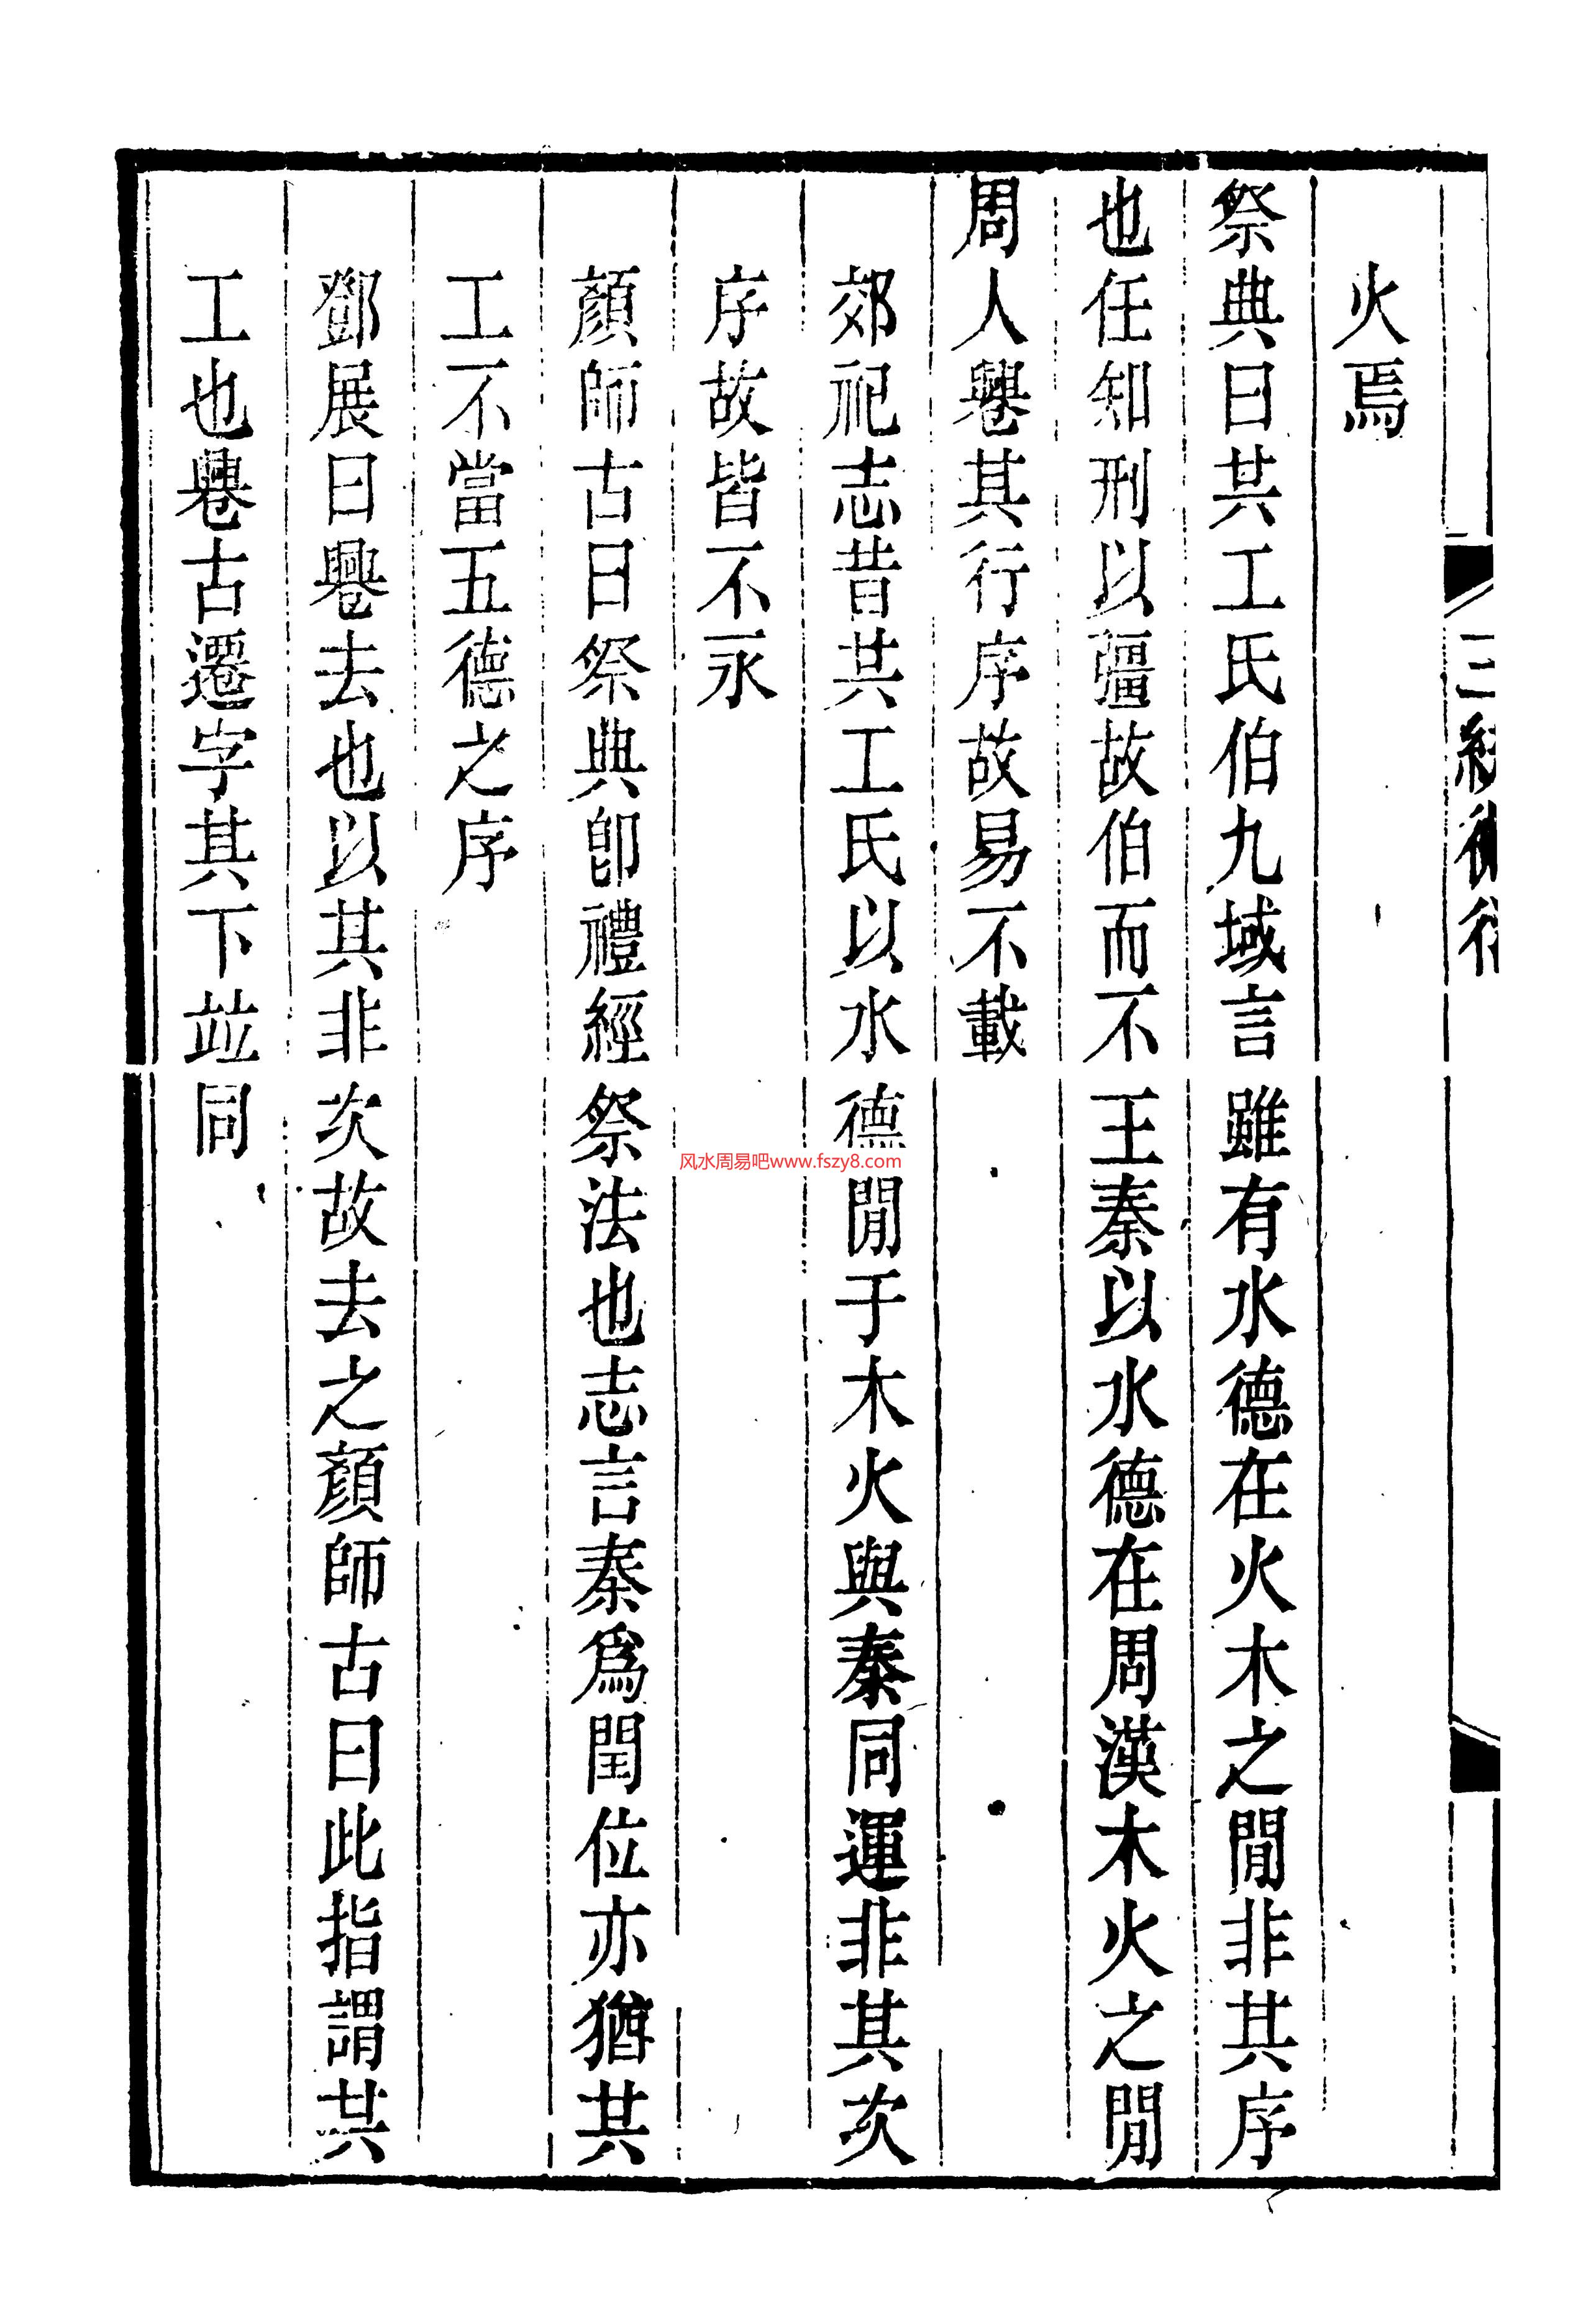 三統術衍
火焉
祭典曰共工氏伯九域言雖有水德在火木之閒非其序
也任知刑以彊故伯而不王秦以水德在周漢木火之閒
周人𠨧其行序故易不載
郊祀志昔共工氏以水德閒于木火與秦同運非其次
序故皆不永
顏師古曰祭典卽禮經祭法也志言秦爲閏位亦猶共
工不當五德之序
鄧展曰𠨧去也以其非次故去之顏師古曰此指謂共
工也𠨧古遷字其下竝同
风水周易吧www.fszy8.com